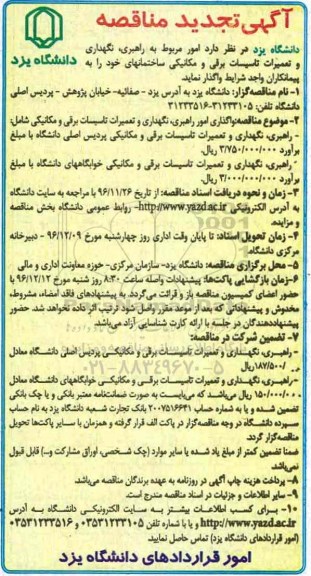 آگهی تجدید مناقصه
دانشگاه یزد
دانشگاه یزد در نظر دارد امور مربوط به راهبری، نگهداری
و تعمیرات تاسیسات برقی و مکانیکی ساختمانهای خود را به
پیمانکاران واجد شرایط واگذار نماید.
۱- نام مناقصه‌گزار: دانشگاه یزد به آدرس یزد - صفائیه- خیابان پژوهش - پردیس اصلی
دانشگاه تلفن: ۳۱۲۳۳۱۰۵-۳۱۲۳۳۵۱۶
۲- موضوع مناقصه:واگذاری امور راهبری، نگهداری و تعمیرات تاسیسات برقی و مکانیکی شامل:
- راهبری، نگهداری و تعمیرات تاسیسات برقی و مکانیکی پردیس اصلی دانشگاه با مبلغ
برآورد ۳/۷۵۰/۰۰۰/۰۰۰ ریال.
- راهبری، نگهداری و تعمیرات تاسیسات برقی و مکانیکی خوابگاههای دانشگاه با مبلغ
برآورد ۳/۰۰۰/۰۰۰/۰۰۰ ریال.
۳- زمان و نحوه دریافت اسناد مناقصه: از تاریخ ۹۶/۱۱/۲۶ با مراجعه به سایت دانشگاه
به آدرس الکترونیکی http://www.yazd.ac.ir- روابط عمومی دانشگاه بخش مناقصه
و مزایده.
۴- زمان تحویل اسناد: تا پایان وقت اداری روز چهارشنبه مورخ ۹۶/۱۲/۰۹ - دبیرخانه
مرکزی دانشگاه.
۵- محل برگزاری مناقصه: دانشگاه یزد- سازمان مرکزی- حوزه معاونت اداری و مالی
۶-زمان بازگشایی پاکت‌ها: پیشنهادات واصله ساعت ۸:۳۰ روز شنبه مورخ ۹۶/۱۲/۱۲ با
حضور اعضای کمیسیون مناقصه باز و قرائت می‌گردد. به پیشنهادهای فاقد امضاء، مشروط،
مخدوش و پیشنهاداتی که بعد از موعد مقرر واصل شود ترتیب اثر داده نخواهد شد. حضور
پیشنهاددهندگان در جلسه با ارائه کارت شناسایی آزاد می‌باشد.
۷- تضمین شرکت در مناقصه:
-راهبری، نگهداری و تعمیرات تاسیسات برقی و مکانیکی پردیس اصلی دانشگاه معادل
ریال.
۰۲۱-۸۸۳۴۹۶۷۰-۵
-راهبری، نگهداری و تعمیرات تاسیسات برقی و مکانیکی خوابگاههای دانشگاه معادل
۱۵۰/۰۰۰/۰۰۰ ریال می‌باشند که می‌بایست به صورت ضمانت‌نامه معتبر بانکی و یا چک بانکی
تضمین شده و یا به شماره حساب ۲۰۰۷۵۱۶۶۴۱ بانک تجارت شعبه دانشگاه یزد به نام حساب
سپرده دانشگاه در وجه مناقصه‌گزار در پاکت الف قرار گرفته و همزمان با سایر پاکت‌ها تحویل
مناقصه‌گزار گردد.
ضمنا تضمین کمتر از مبلغ یاد شده یا سایر موارد (چک شخصی، اوراق مشارکت و...) قابل قبول
نمی‌باشد.
۸- پرداخت هزینه چاپ آگهی در روزنامه به عهده برندگان مناقصه می‌باشد.
۹- سایر اطلاعات و جزئیات در اسناد مناقصه مندرج است.
۱۰- برای کسب اطلاعات بیشتر به سایت الکترونیکی دانشگاه به آدرس
http://www.yazd.ac.ir و یا با شماره تلفن ۰۳۵۳۱۲۳۳۱۰۵ و ۰۳۵۳۱۲۳۳۵۱۶
(امور قراردادهای دانشگاه یزد) تماس حاصل نمایید.
امور قراردادهای دانشگاه یزد